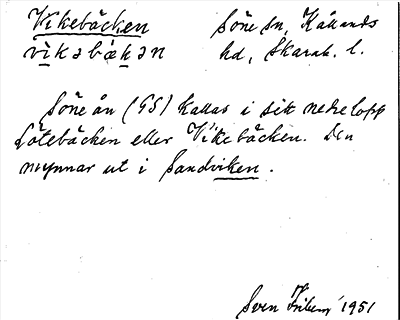 Vikebäcken Söne sn, Kållands
vikəbækən hd, Skarab. l.
Söne ån (GS) kallas i sitt nedre lopp
Götebäcken eller Vikebäcken. Den
mynnar ut i Sandviken.
Sven 1951